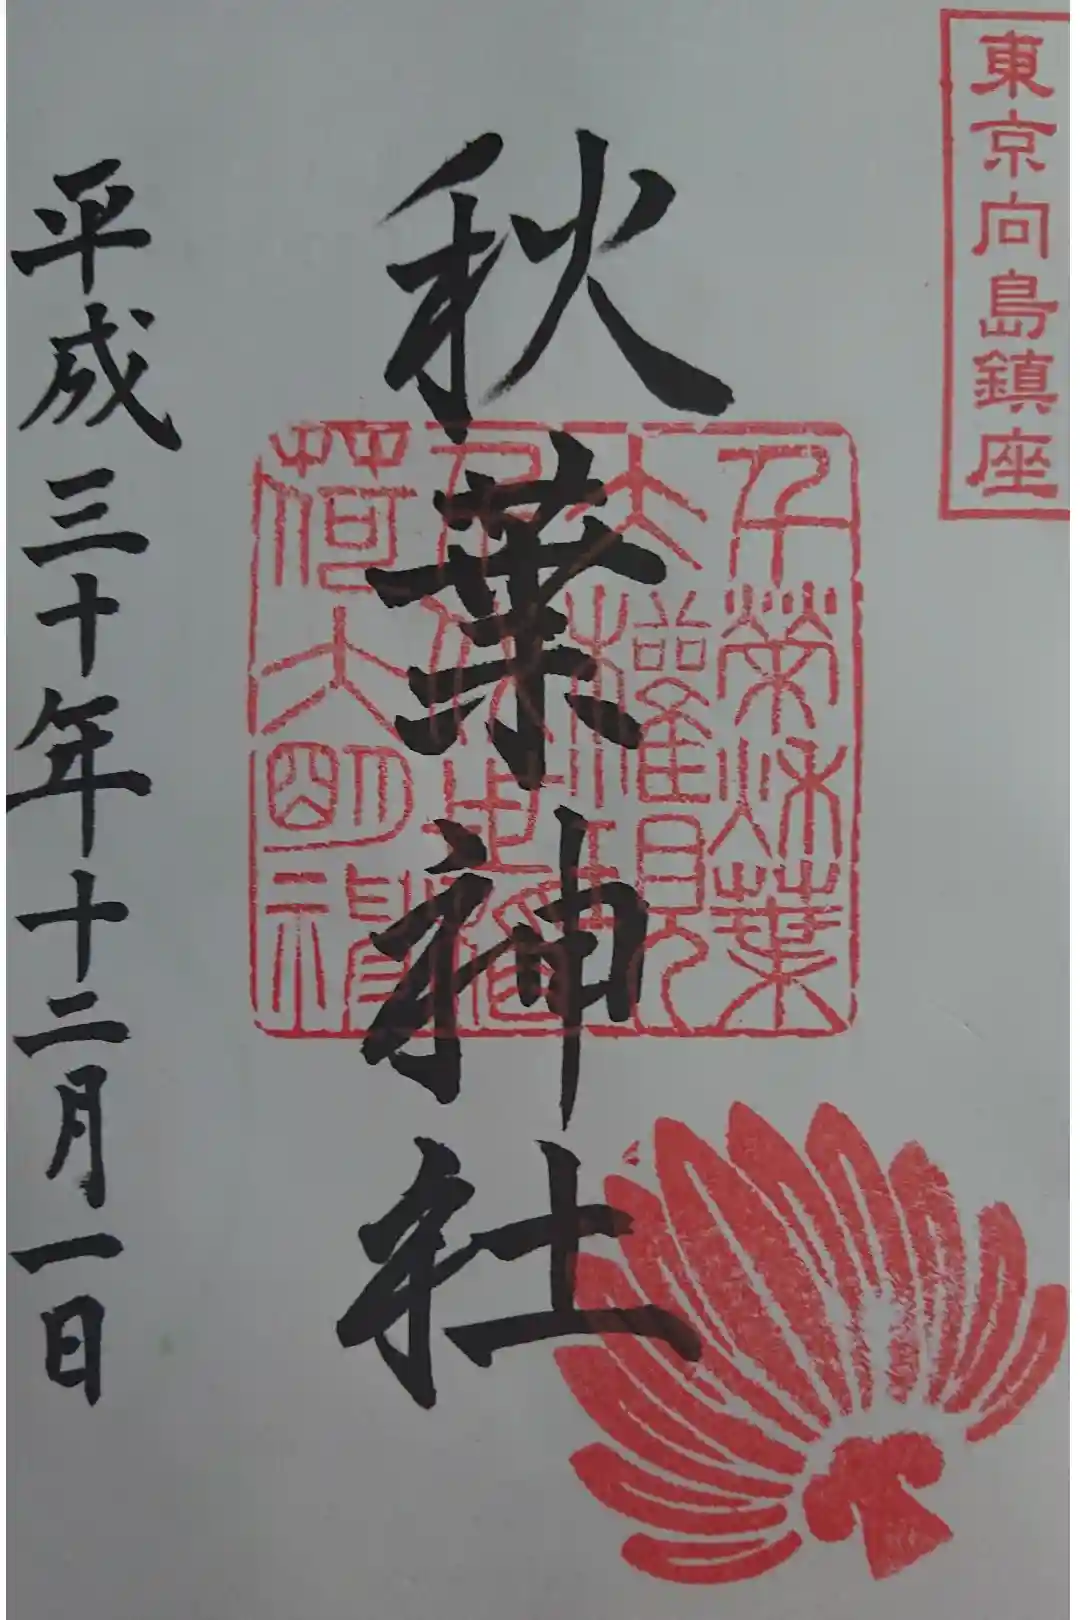 東京向島鎮座
秋葉神社
平成三十年十二月一日
千榮秋葉
大權現
荷大明神